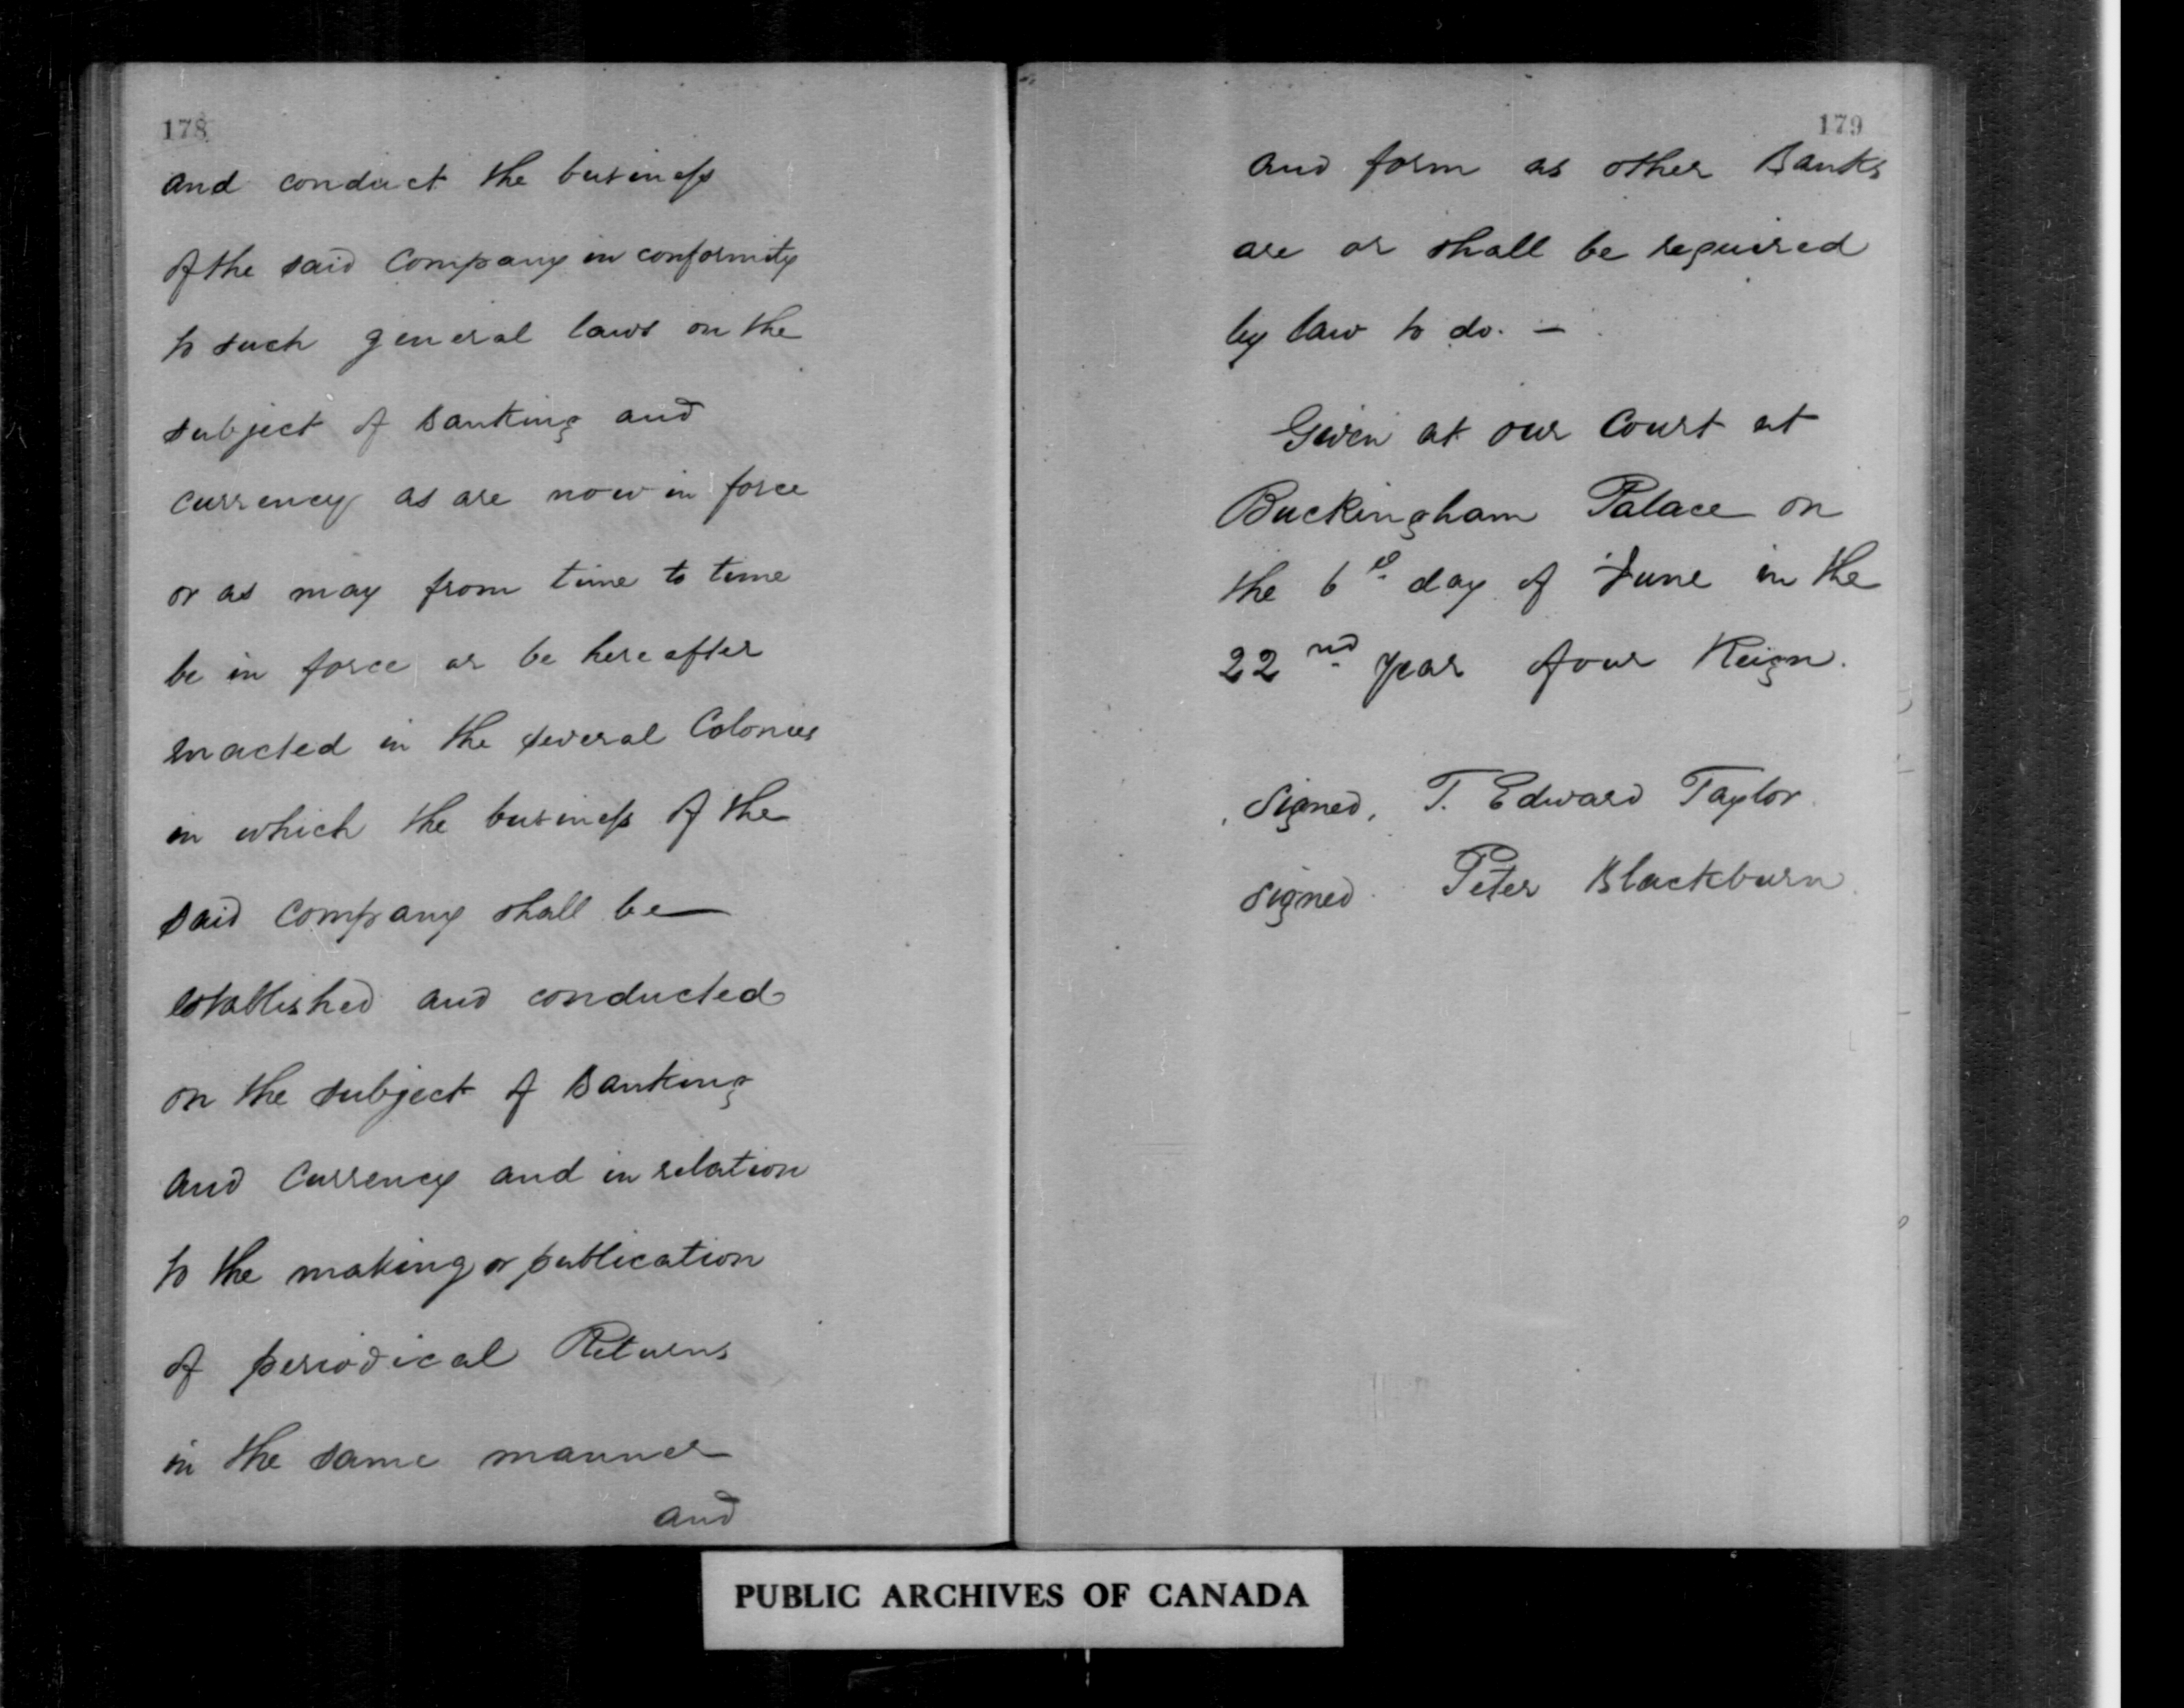 178
and conduct the business
of the said Company in conformity
to such general laws on the
subject of Banking and
currency as are now in force
or as may from time to time
be in force or be hereafter
enacted in the several Colonies
in which the business of the
said Company shall be
established and conducted
on the subject of Banking
and Currency and in relation
to the making or publication
of periodical Returns
in the same manner
and
179
and form as other Banks
are or shall be required
by law to do. —
Given at our Court at
Buckingham Palace on
the 6th day of June in the
22nd year of our Reign.
Signed, T. Edward Taylor.
Signed. Peter Blackburn.
PUBLIC ARCHIVES OF CANADA